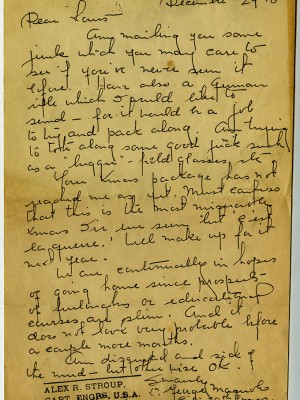 December 29 18
Dear Louis
Am mailing you some
junk which you may care to
see if you've never seen it
before. Have also a German
rifle which I would like to
send - for it would be a job
to try and pack along. Am trying
to tote along some good junk such
as a "lugger" - field glasses, etc.
Your Xmas package has not
reached me as yet. Must confess
that this is the most miserable
Xmas I've ever seen but "c'est
la guerre." Will make up for it
next year.
We are continually in hopes
of going home since prospects
of furloughs or educational
courses are slim. And it
does not look very probable before
a couple more months.
Am disgusted and sick of
the mud - but otherwise OK.
Sincerely
George
ALEX R. STROUP,
CAPT. ENGRS, U.S.A.